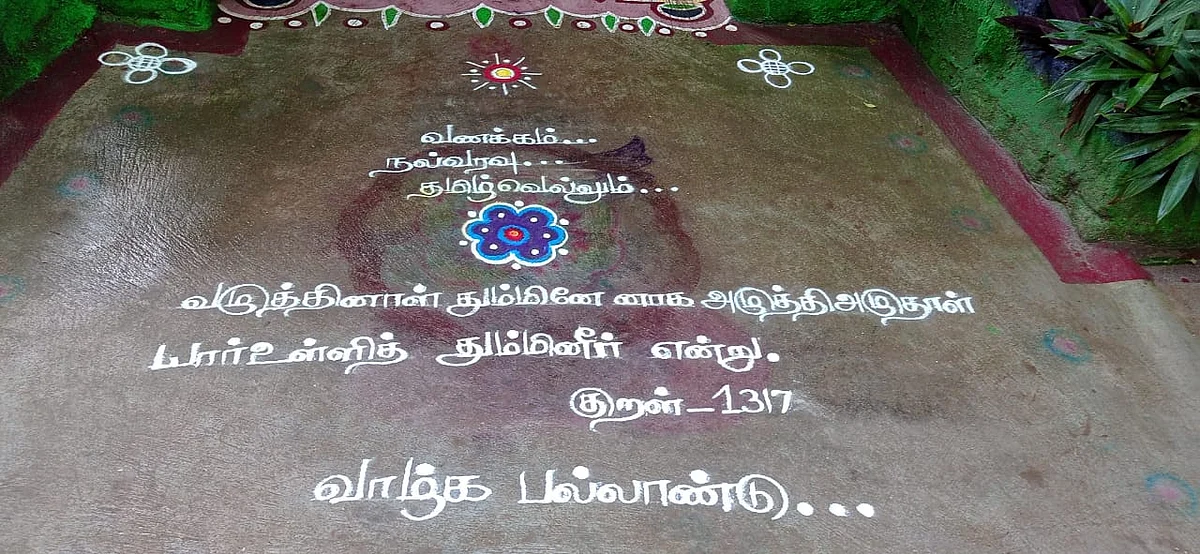 வணக்கம்...
நல்வரவு...
தமிழ்வெல்லும்...
வழுத்தினாள் தும்மினே னாக அழுத்திஅழுதாள்
யார்உள்ளித் தும்மினீர் என்று.
குறள்-1317
வாழ்க பல்லாண்டு...